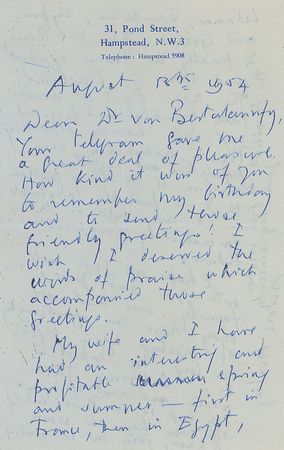 31, Pond Street,
Hampstead, N.W.3
Telephone: Hampstead 5908
August 1954
Dear Dr von Bertalannfy,
Your telegram gave me
a great deal of pleasure.
How kind it was of you
to remember my birthday
and to send those
friendly greetings! I
wish I deserved the
words of praise which
accompanied those
greetings.
My wife and I have
had an interesting and
profitable spring
and summer — first in
France, then in Egypt,